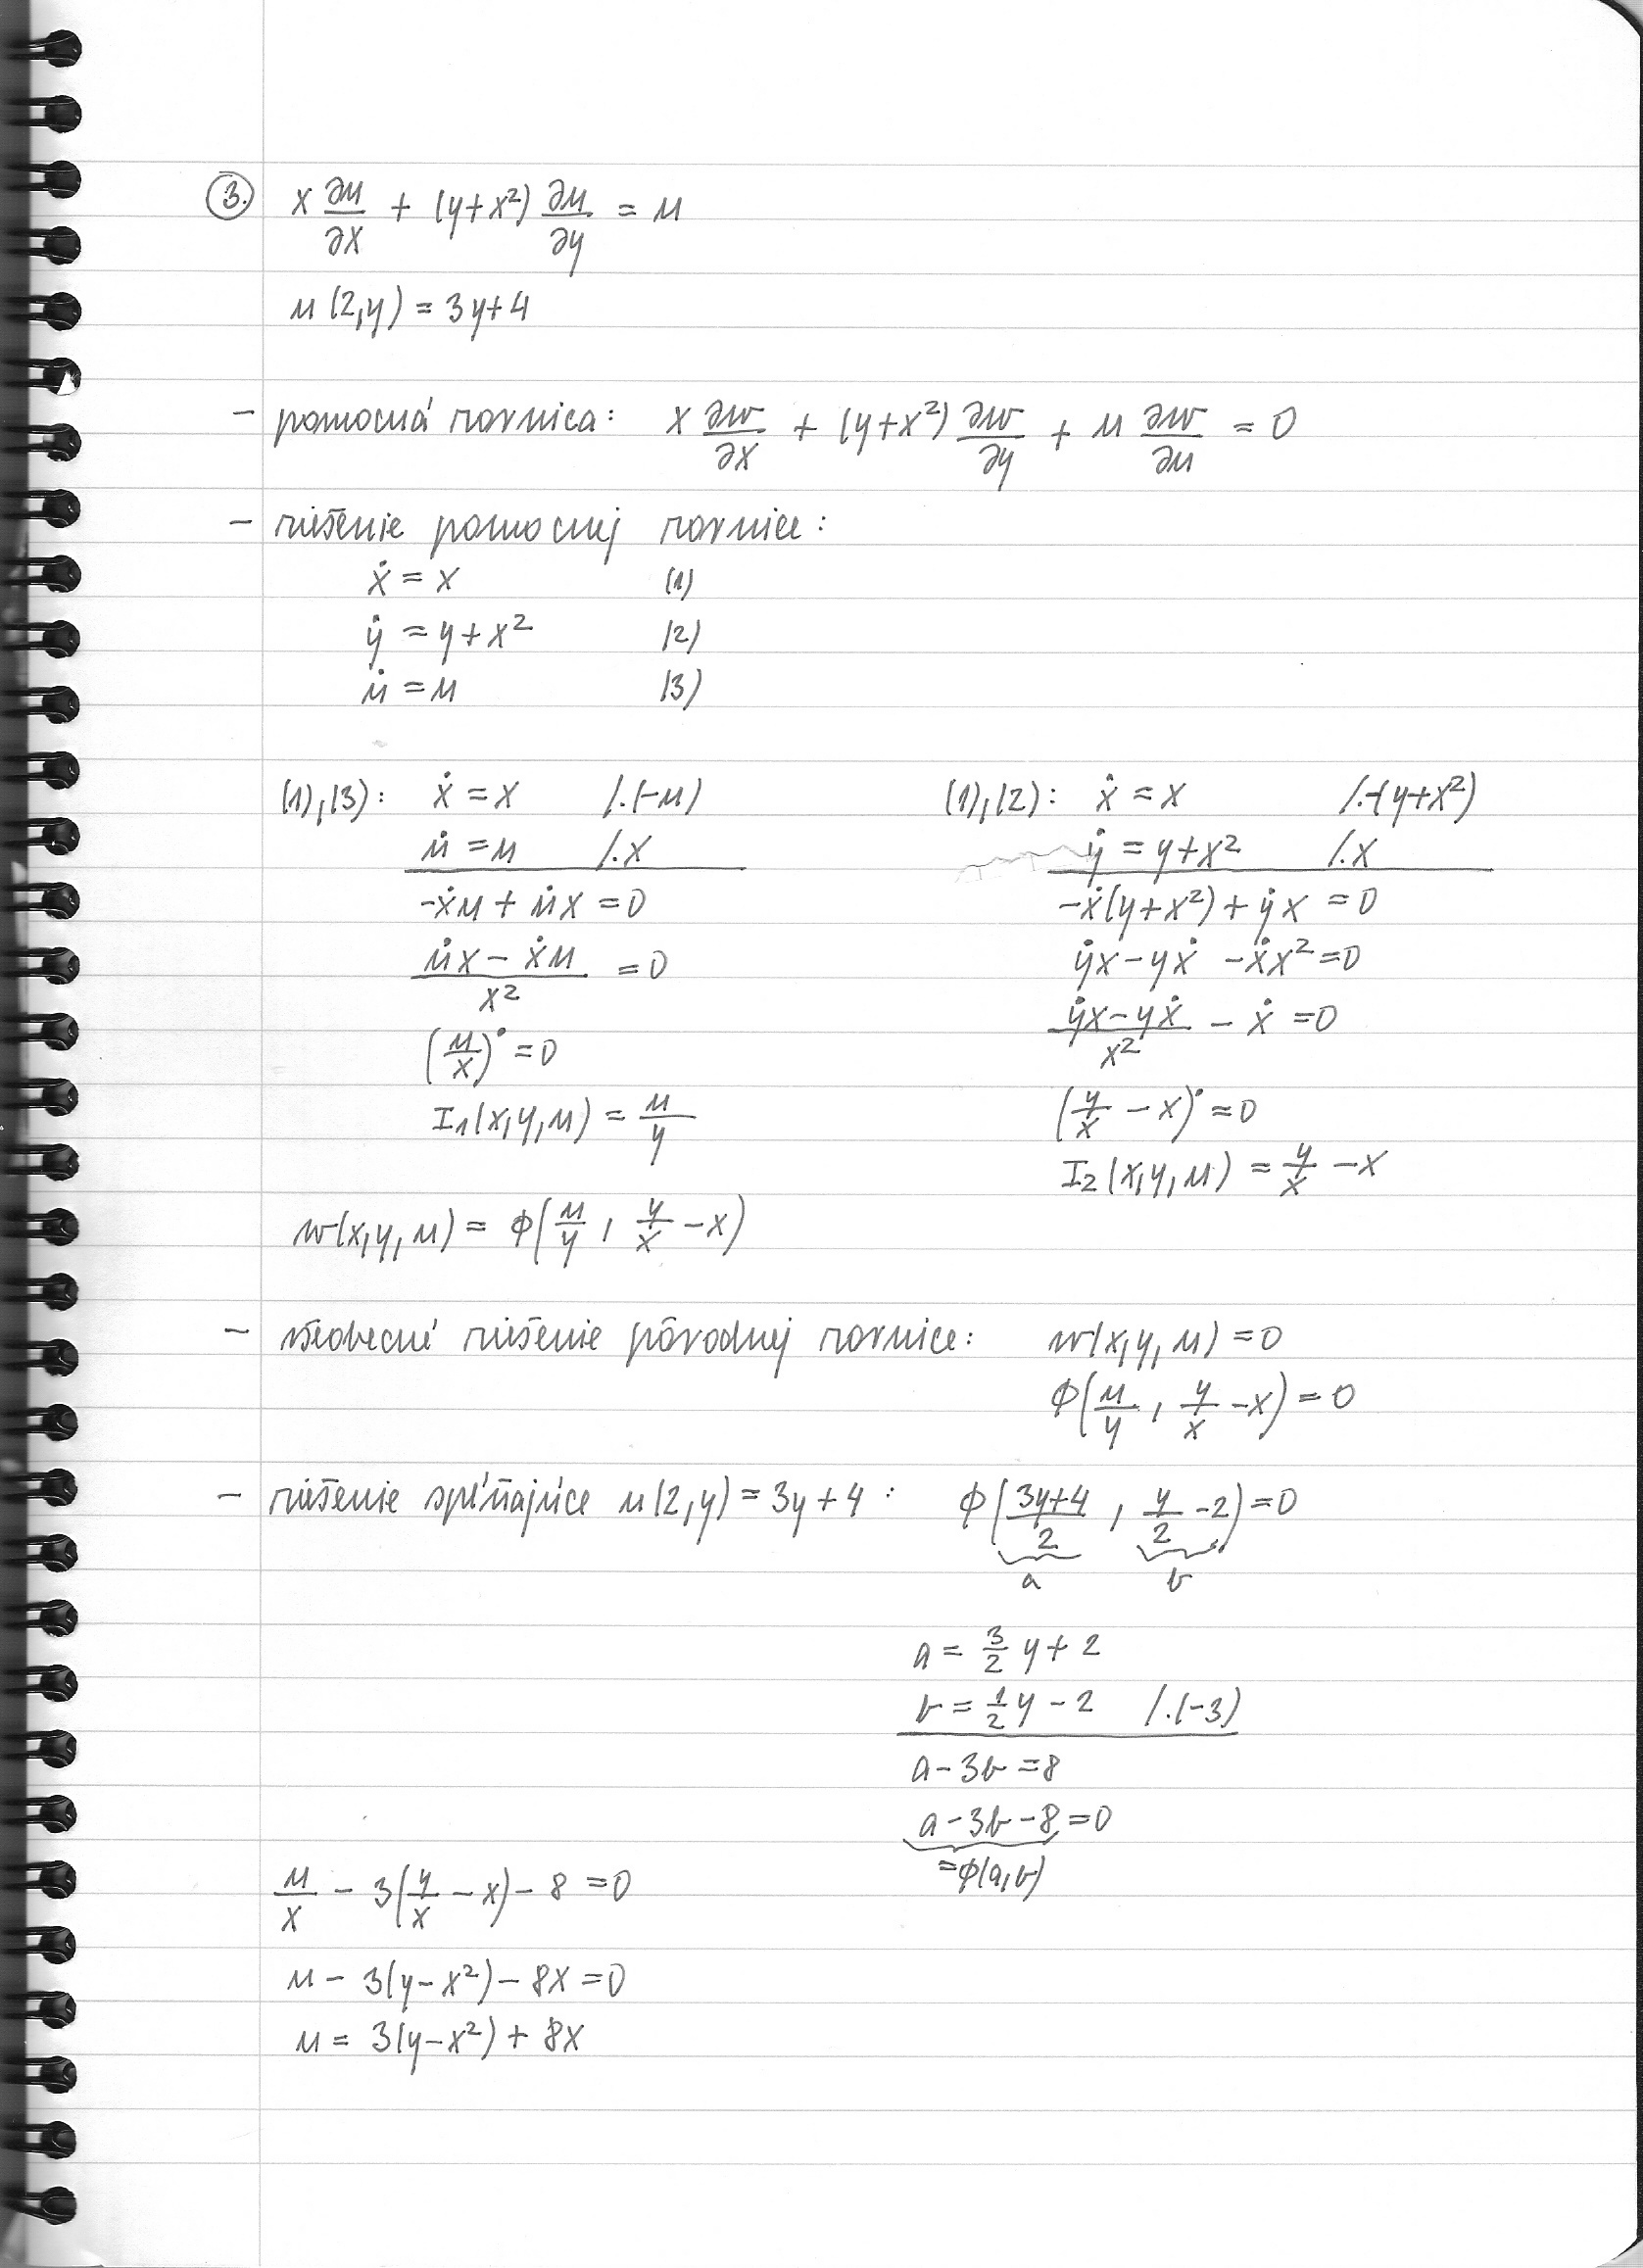 3. x ∂u/∂x + (y+x²) ∂u/∂y = u
u(2,y) = 3y+4
- pomocná rovnica: x ∂w/∂x + (y+x²) ∂w/∂y + u ∂w/∂u = 0
- riešenie pomocnej rovnice:
ẋ = x (1)
ẏ = y+x² (2)
u̇ = u (3)
(1),(3): ẋ = x /.(-u)
u̇ = u /.x
-ẋu + u̇x = 0
(u̇x - ẋu)/x² = 0
(u/x)˙ = 0
I₁(x,y,u) = u/y
(1),(2): ẋ = x /.-(y+x²)
ẏ = y+x² /.x
-ẋ(y+x²) + ẏx = 0
ẏx - yẋ - ẋx² = 0
(ẏx - yẋ)/x² - ẋ = 0
(y/x - x)˙ = 0
I₂(x,y,u) = y/x - x
w(x,y,u) = ϕ(u/y , y/x - x)
- všeobecné riešenie pôvodnej rovnice: w(x,y,u) = 0
ϕ(u/y , y/x - x) = 0
- riešenie spĺňajúce u(2,y) = 3y+4 : ϕ((3y+4)/2 , y/2 - 2) = 0
a b
a = 3/2 y + 2
b = 1/2 y - 2 /.(-3)
a - 3b = 8
a - 3b - 8 = 0
= ϕ(a,b)
u/x - 3(y/x - x) - 8 = 0
u - 3(y-x²) - 8x = 0
u = 3(y-x²) + 8x